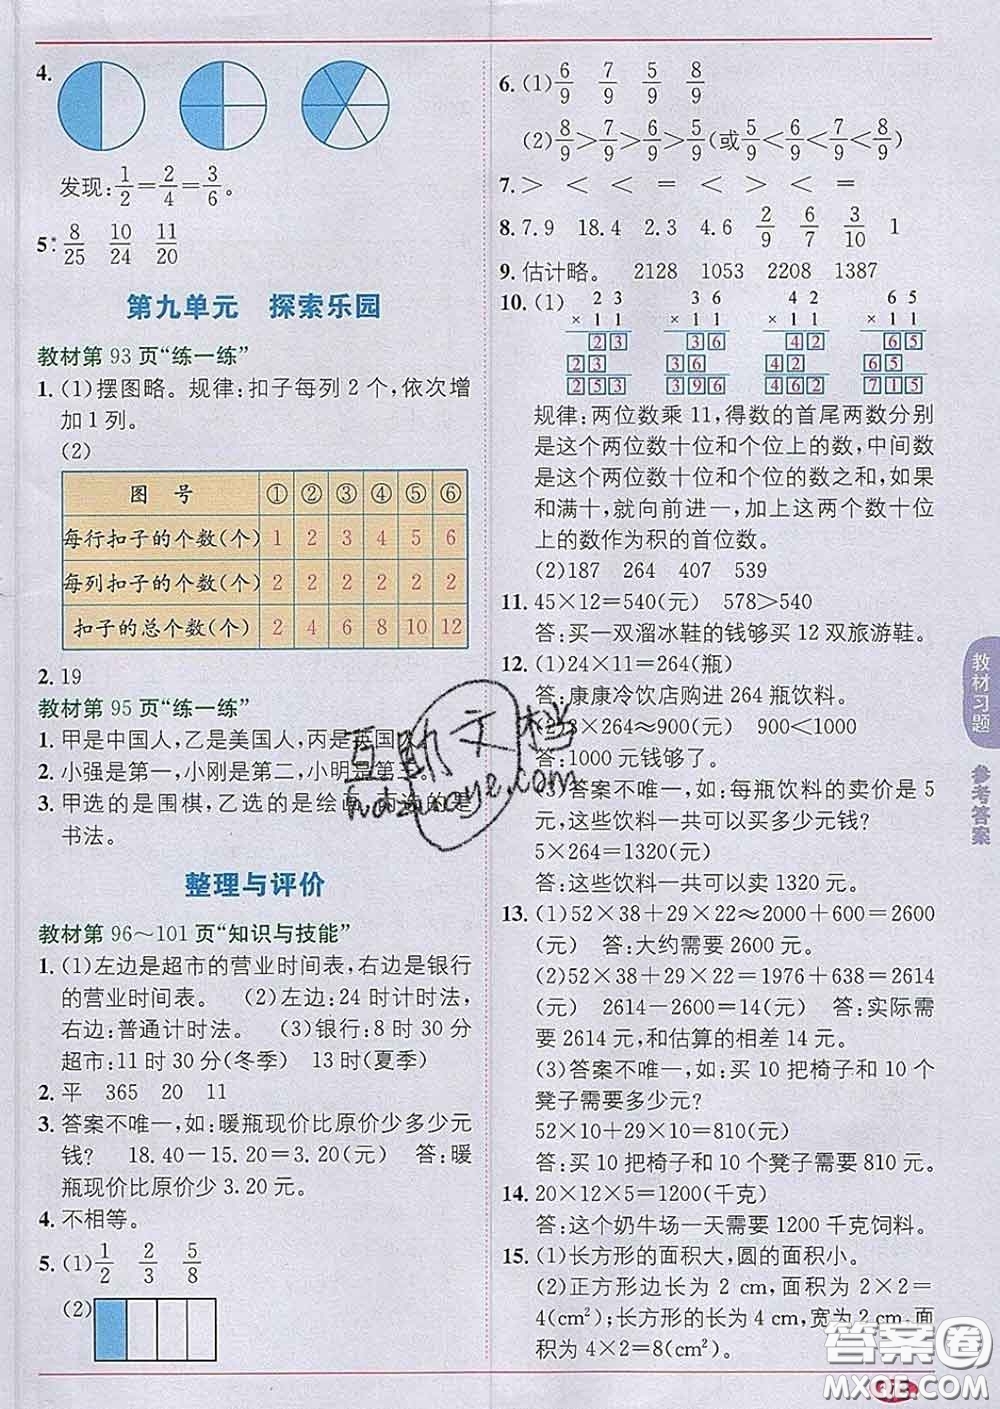 4.
发现:1/2=2/4=3/6。
5. 8/25 10/24 11/20
第九单元 探索乐园
教材第 93 页“练一练”
1. (1)摆图略。规律:扣子每列 2 个,依次增
加 1 列。
(2)
图 号 ① ② ③ ④ ⑤ ⑥
每行扣子的个数(个) 1 2 3 4 5 6
每列扣子的个数(个) 2 2 2 2 2 2
扣子的总个数(个) 2 4 6 8 10 12
2. 19
教材第 95 页“练一练”
1. 甲是中国人,乙是美国人,丙是英国
2. 小强是第一,小刚是第二,小明是第三。
3. 甲选的是围棋,乙选的是绘画,丙选的是
书法。
整理与评价
教材第 96～101 页“知识与技能”
1. (1)左边是超市的营业时间表,右边是银行
的营业时间表。 (2)左边:24 时计时法,
右边:普通计时法。 (3)银行:8 时 30 分
超市:11 时 30 分(冬季) 13 时(夏季)
2. 平 365 20 11
3. 答案不唯一,如:暖瓶现价比原价少多少元
钱? 18.40－15.20=3.20(元) 答:暖
瓶现价比原价少 3.20 元。
4. 不相等。
5. (1)1/2 2/3 5/8
(2)
6. (1)6/9 7/9 5/9 8/9
(2)8/9>7/9>6/9>5/9(或5/9<6/9<7/9<8/9)
7. > < < = < > < < =
8. 7.9 18.4 2.3 4.6 2/9 6/7 3/10 1
9. 估计略。 2128 1053 2208 1387
10. (1) 2 3 3 6 4 2 6 5
× 1 1 × 1 1 × 1 1 × 1 1
2 3 3 6 4 2 6 5
2 3 3 6 4 2 6 5
2 5 3 3 9 6 4 6 2 7 1 5
规律:两位数乘 11,得数的首尾两数分别
是这个两位数十位和个位上的数,中间数
是这个两位数十位和个位的数之和,如果
和满十,就向前进一,加上这两个数十位
上的数作为积的首位数。
(2)187 264 407 539
11. 45×12=540(元) 578>540
答:买一双溜冰鞋的钱够买 12 双旅游鞋。
12. (1)24×11=264(瓶)
答:康康冷饮店购进 264 瓶饮料。
3×264≈900(元) 900<1000
答:1000 元钱够了。
(3)答案不唯一,如:每瓶饮料的卖价是 5
元,这些饮料一共可以买多少元钱?
5×264=1320(元)
答:这些饮料一共可以卖 1320 元。
13. (1)52×38+29×22≈2000+600=2600
(元) 答:大约需要 2600 元。
(2)52×38+29×22=1976+638=2614
(元) 2614－2600=14(元) 答:实际需
要 2614 元,和估算的相差 14 元。
(3)答案不唯一,如:买 10 把椅子和 10 个
凳子需要多少元?
52×10+29×10=810(元)
答:买 10 把椅子和 10 个凳子需要 810 元。
14. 20×12×5=1200(千克)
答:这个奶牛场一天需要 1200 千克饲料。
15. (1)长方形的面积大,圆的面积小。
(2)正方形边长为 2 cm,面积为 2×2=
4(cm²);长方形的长为 4 cm,宽为 2 cm,面
积为 4×2=8(cm²)。
教材习题
参考答案
互助文档
hdzhaoye.com
答案圈
MXQE.COM